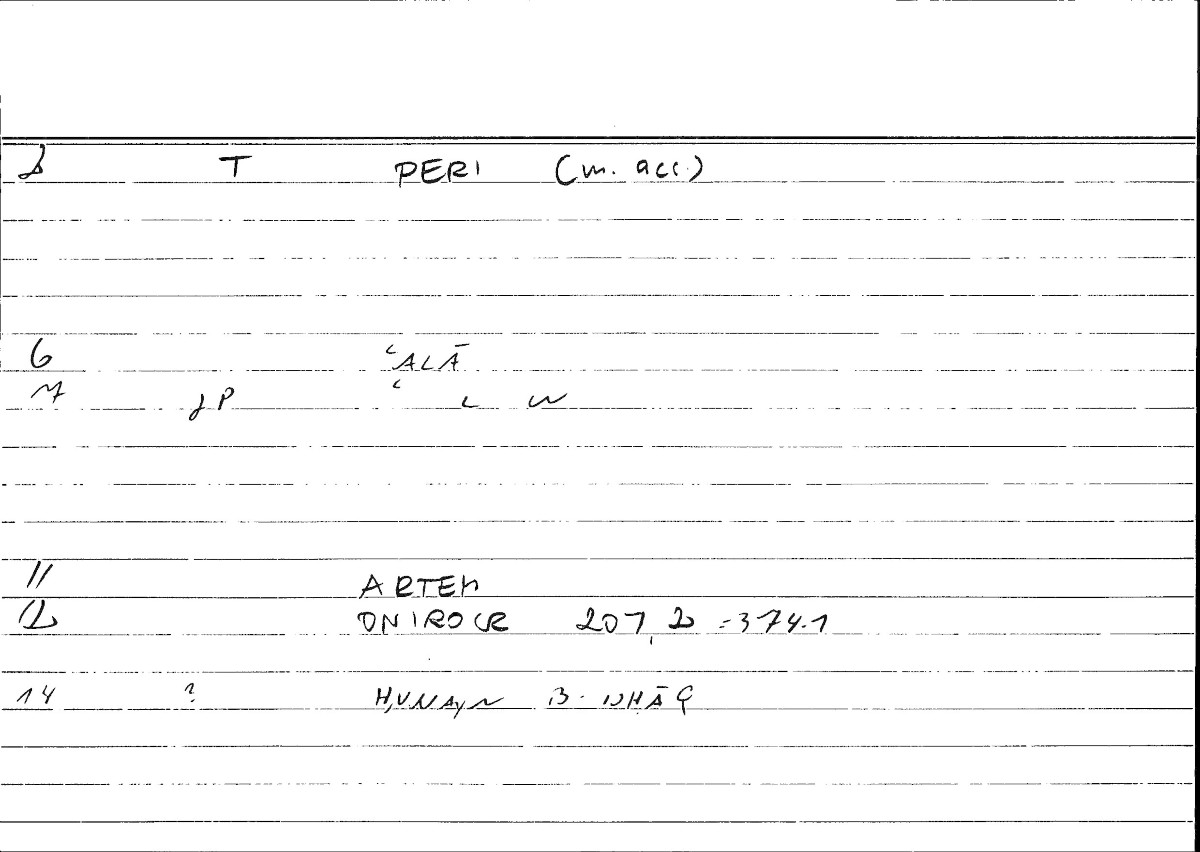 2 T PERI (m. acc.)
6 ʿALĀ
7 JP ʿ L W
11 ARTEM
12 ONIROCR 207,2 = 374.1
14 ? ḤUNAYN B. ISḤĀQ